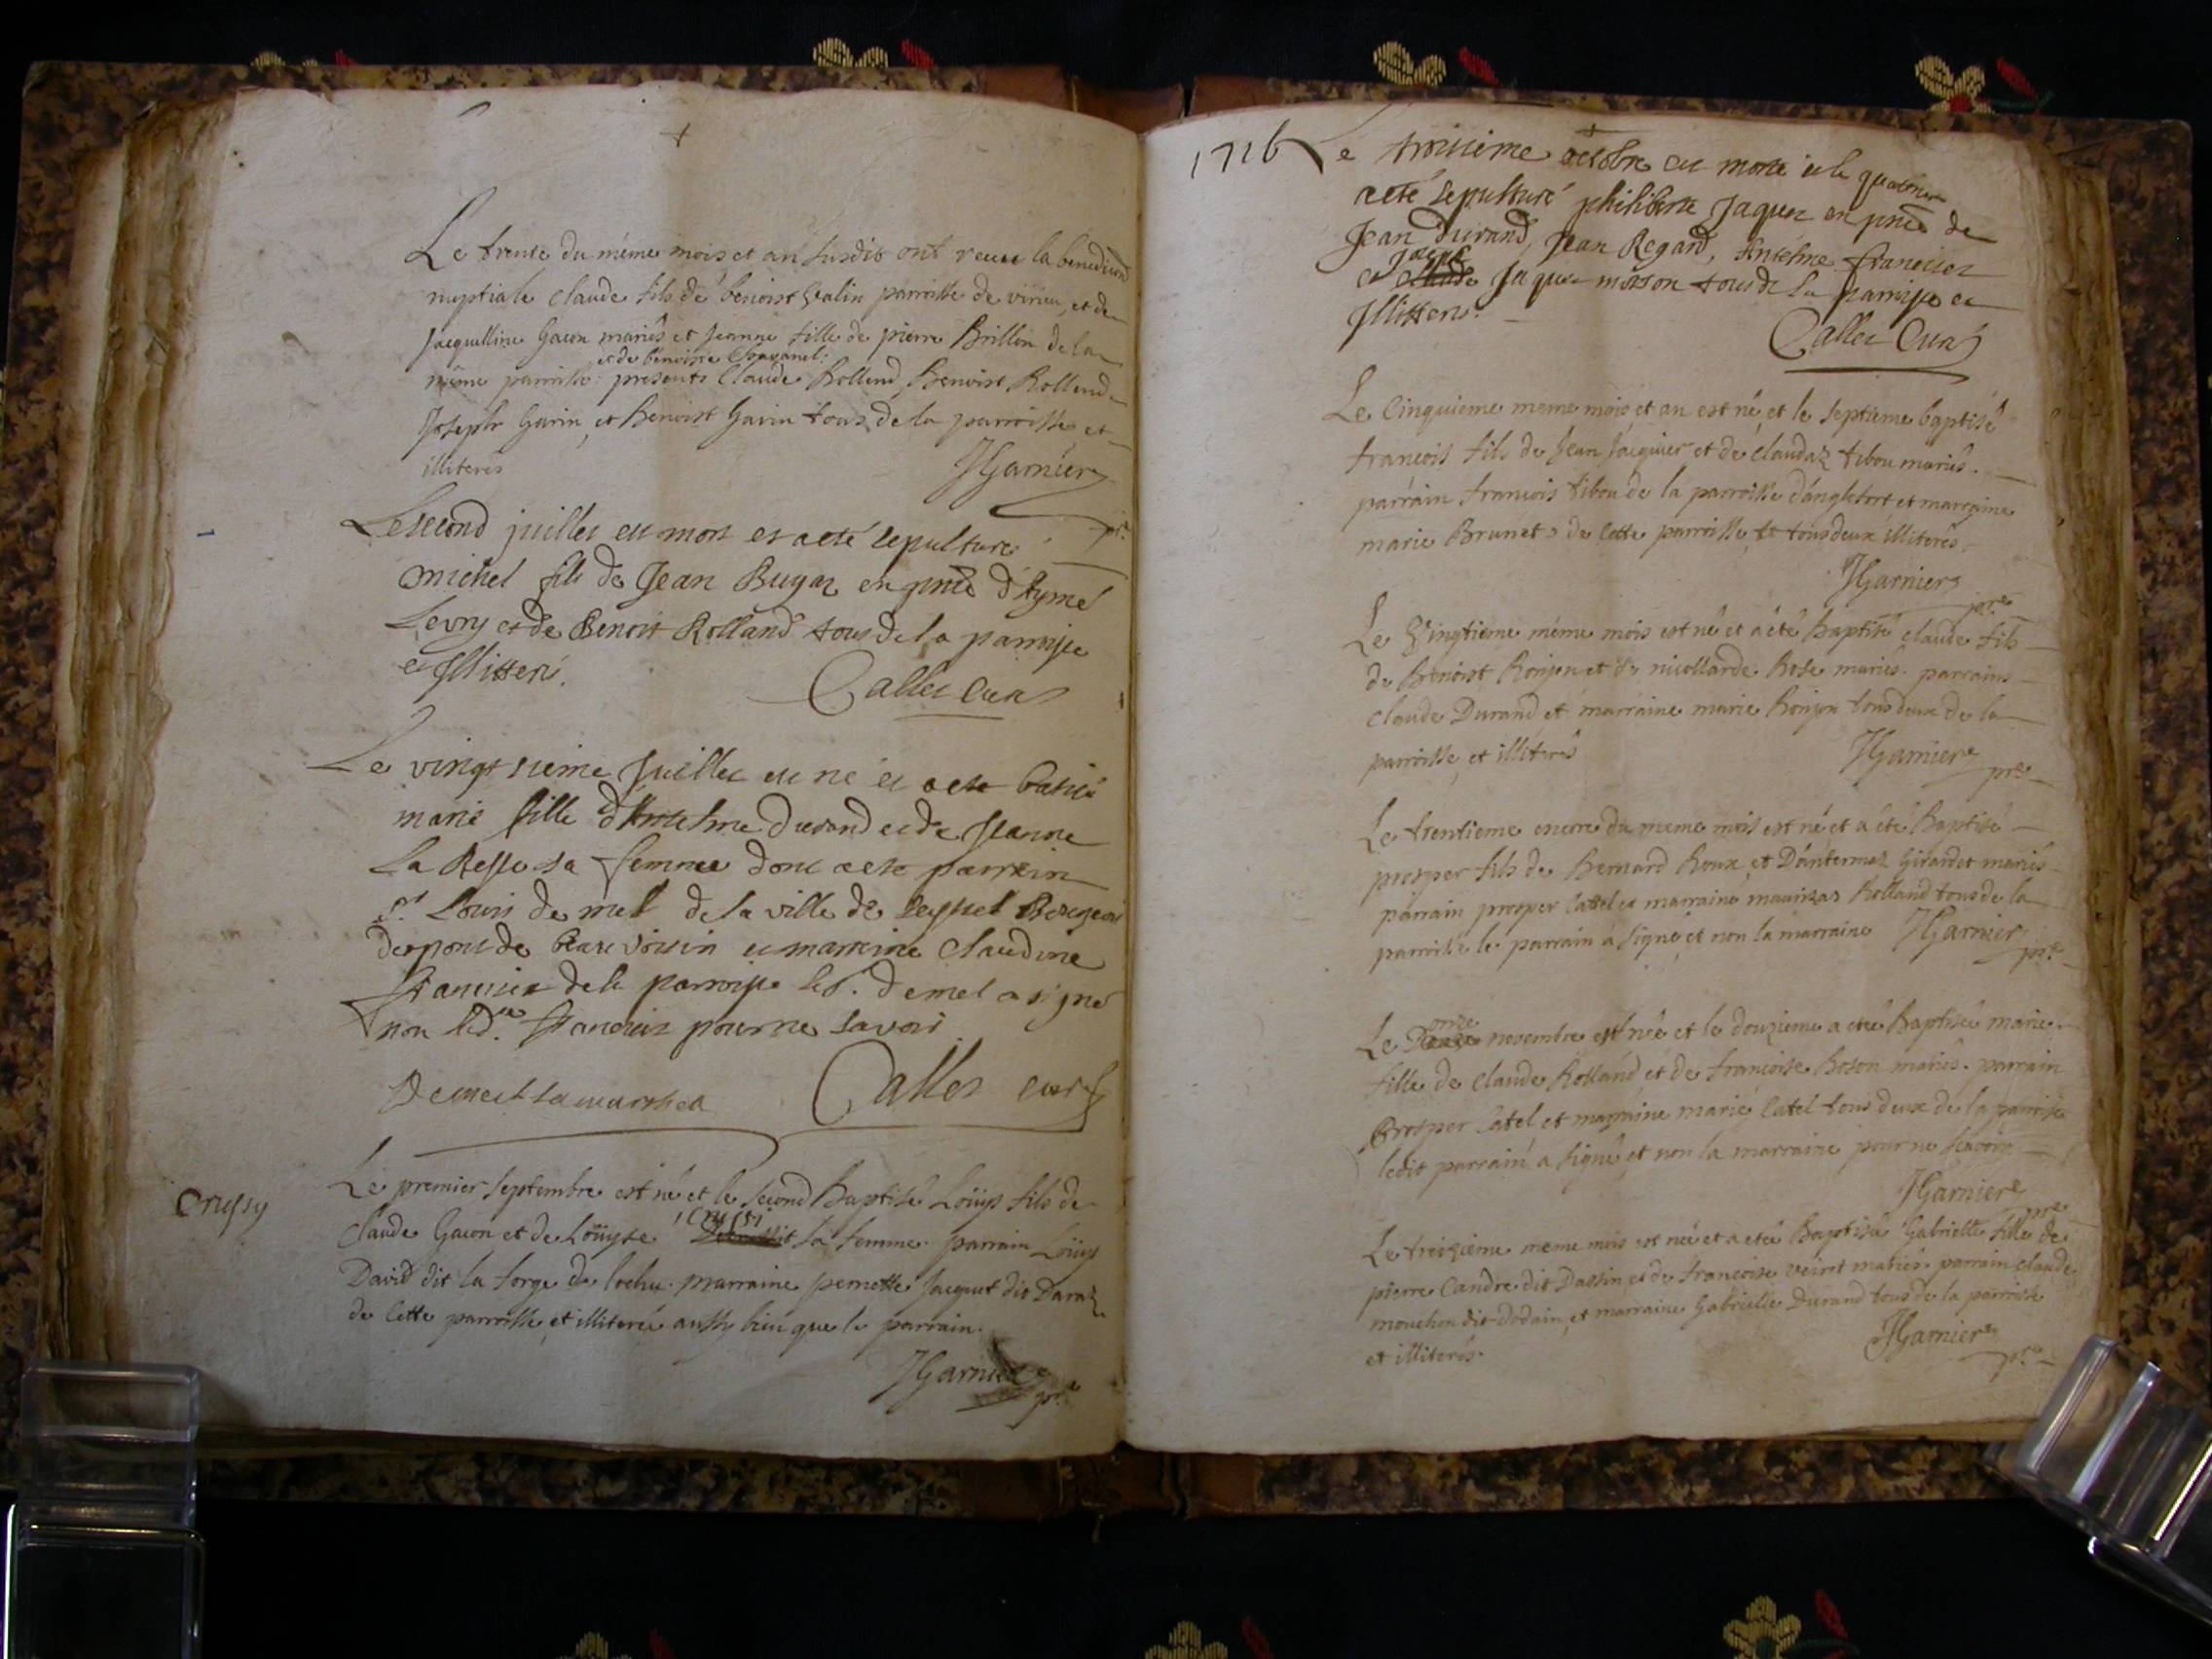 Le trente du méme mois et an susdit ont receu la benediction
nuptiale claude fils de benoist parroisse de virieu, et de
Jacquelline Gacon mariés et Jeanne fille de pierre Brillin de la
et de benoiste
méme parroisse presents Claude Rolland, Benoist Rolland
Joseph Garin, et Benoist Garin tous de la parroisse et
illiteres
JGarnier
ptre
Le second juillet est mort et a eté sepulturé
michel fils de Jean Bugar en pnce d'Aymé
Levry et de Benoit Rolland tous de la parroisse
et Illitteré.
Callet Curé
Le vingt sieme Juillet est né et a eté batisé
marie fille d'Antelme Durand et de Jeanne
La Resse sa femme dont a eté parrein
Sr Louis de mel de la ville de seyssel Bourgeois
du pont de beauvoisin et marreine Claudine
francisez de la parroisse led. demel a signé
non lad. francisez pour ne savoir
Callet curé
Crussy
Le premier septembre est né et le second baptisé Loüys fils de
Crussi
claude Gacon et de Loüyse sa femme. parrain Loüys
David dit la forge de lochu. marraine pernette Jacquet dit Daraz
de cette parroisse, et illiterés aussy bien que le parrain.
JGarnier
ptre
1716 Le troisieme octobre est mort et le quatrieme
a eté sepulturé philiberte Jaquer en pnce de
Jean Durand, Jean Regard, Antelme francisez
Joseph
et claude Jaquer moison tous de la parroisse et
Illitterés.
Callet Curé
Le Cinquieme meme mois et an est né, et le septieme baptisé
francois fils de Jean Jacquier et de claudaz tibou mariés.
parrain francois tibou de la parroisse d'anglefort et marraine
marie Brunet de cette parroisse, et tous deux illiterés.
JGarnier
ptre
Le Vingtieme méme mois est né et a été baptisé claude fils
de Benoist Ronjon et de nicollarde Rose mariés. parrains
claude Durand et marraine marie Ronjon tous deux de la
parroisse, et illiterés
JGarnier
ptre
Le trentieme encore du meme mois est né et a été baptisé
prosper fils de Bernard Roux et D'antermaz Girardet mariés
parrain prosper Cattel et marraine maurizaz Rolland tous de la
parroisse le parrain a signé, et non la marraine JGarnier
ptre
onze
Le novembre est née et le douzieme a eté baptisée marie
fille de claude Rolland et de francoise Boson mariés. parrain
Prosper Catel et marraine marie Catel tous deux de la parroisse
ledit parrain a signé et non la marraine pour ne scavoir
JGarnier
ptre
Le treizieme meme mois est née et a eté baptisée Gabrielle fille de
pierre Candre dit Dassin, et de francoise veirot mariés. parrain claude
mouchon dit Dodain, et marraine Gabrielle Durand tous de la parroisse
et illiterés.
JGarnier
ptre